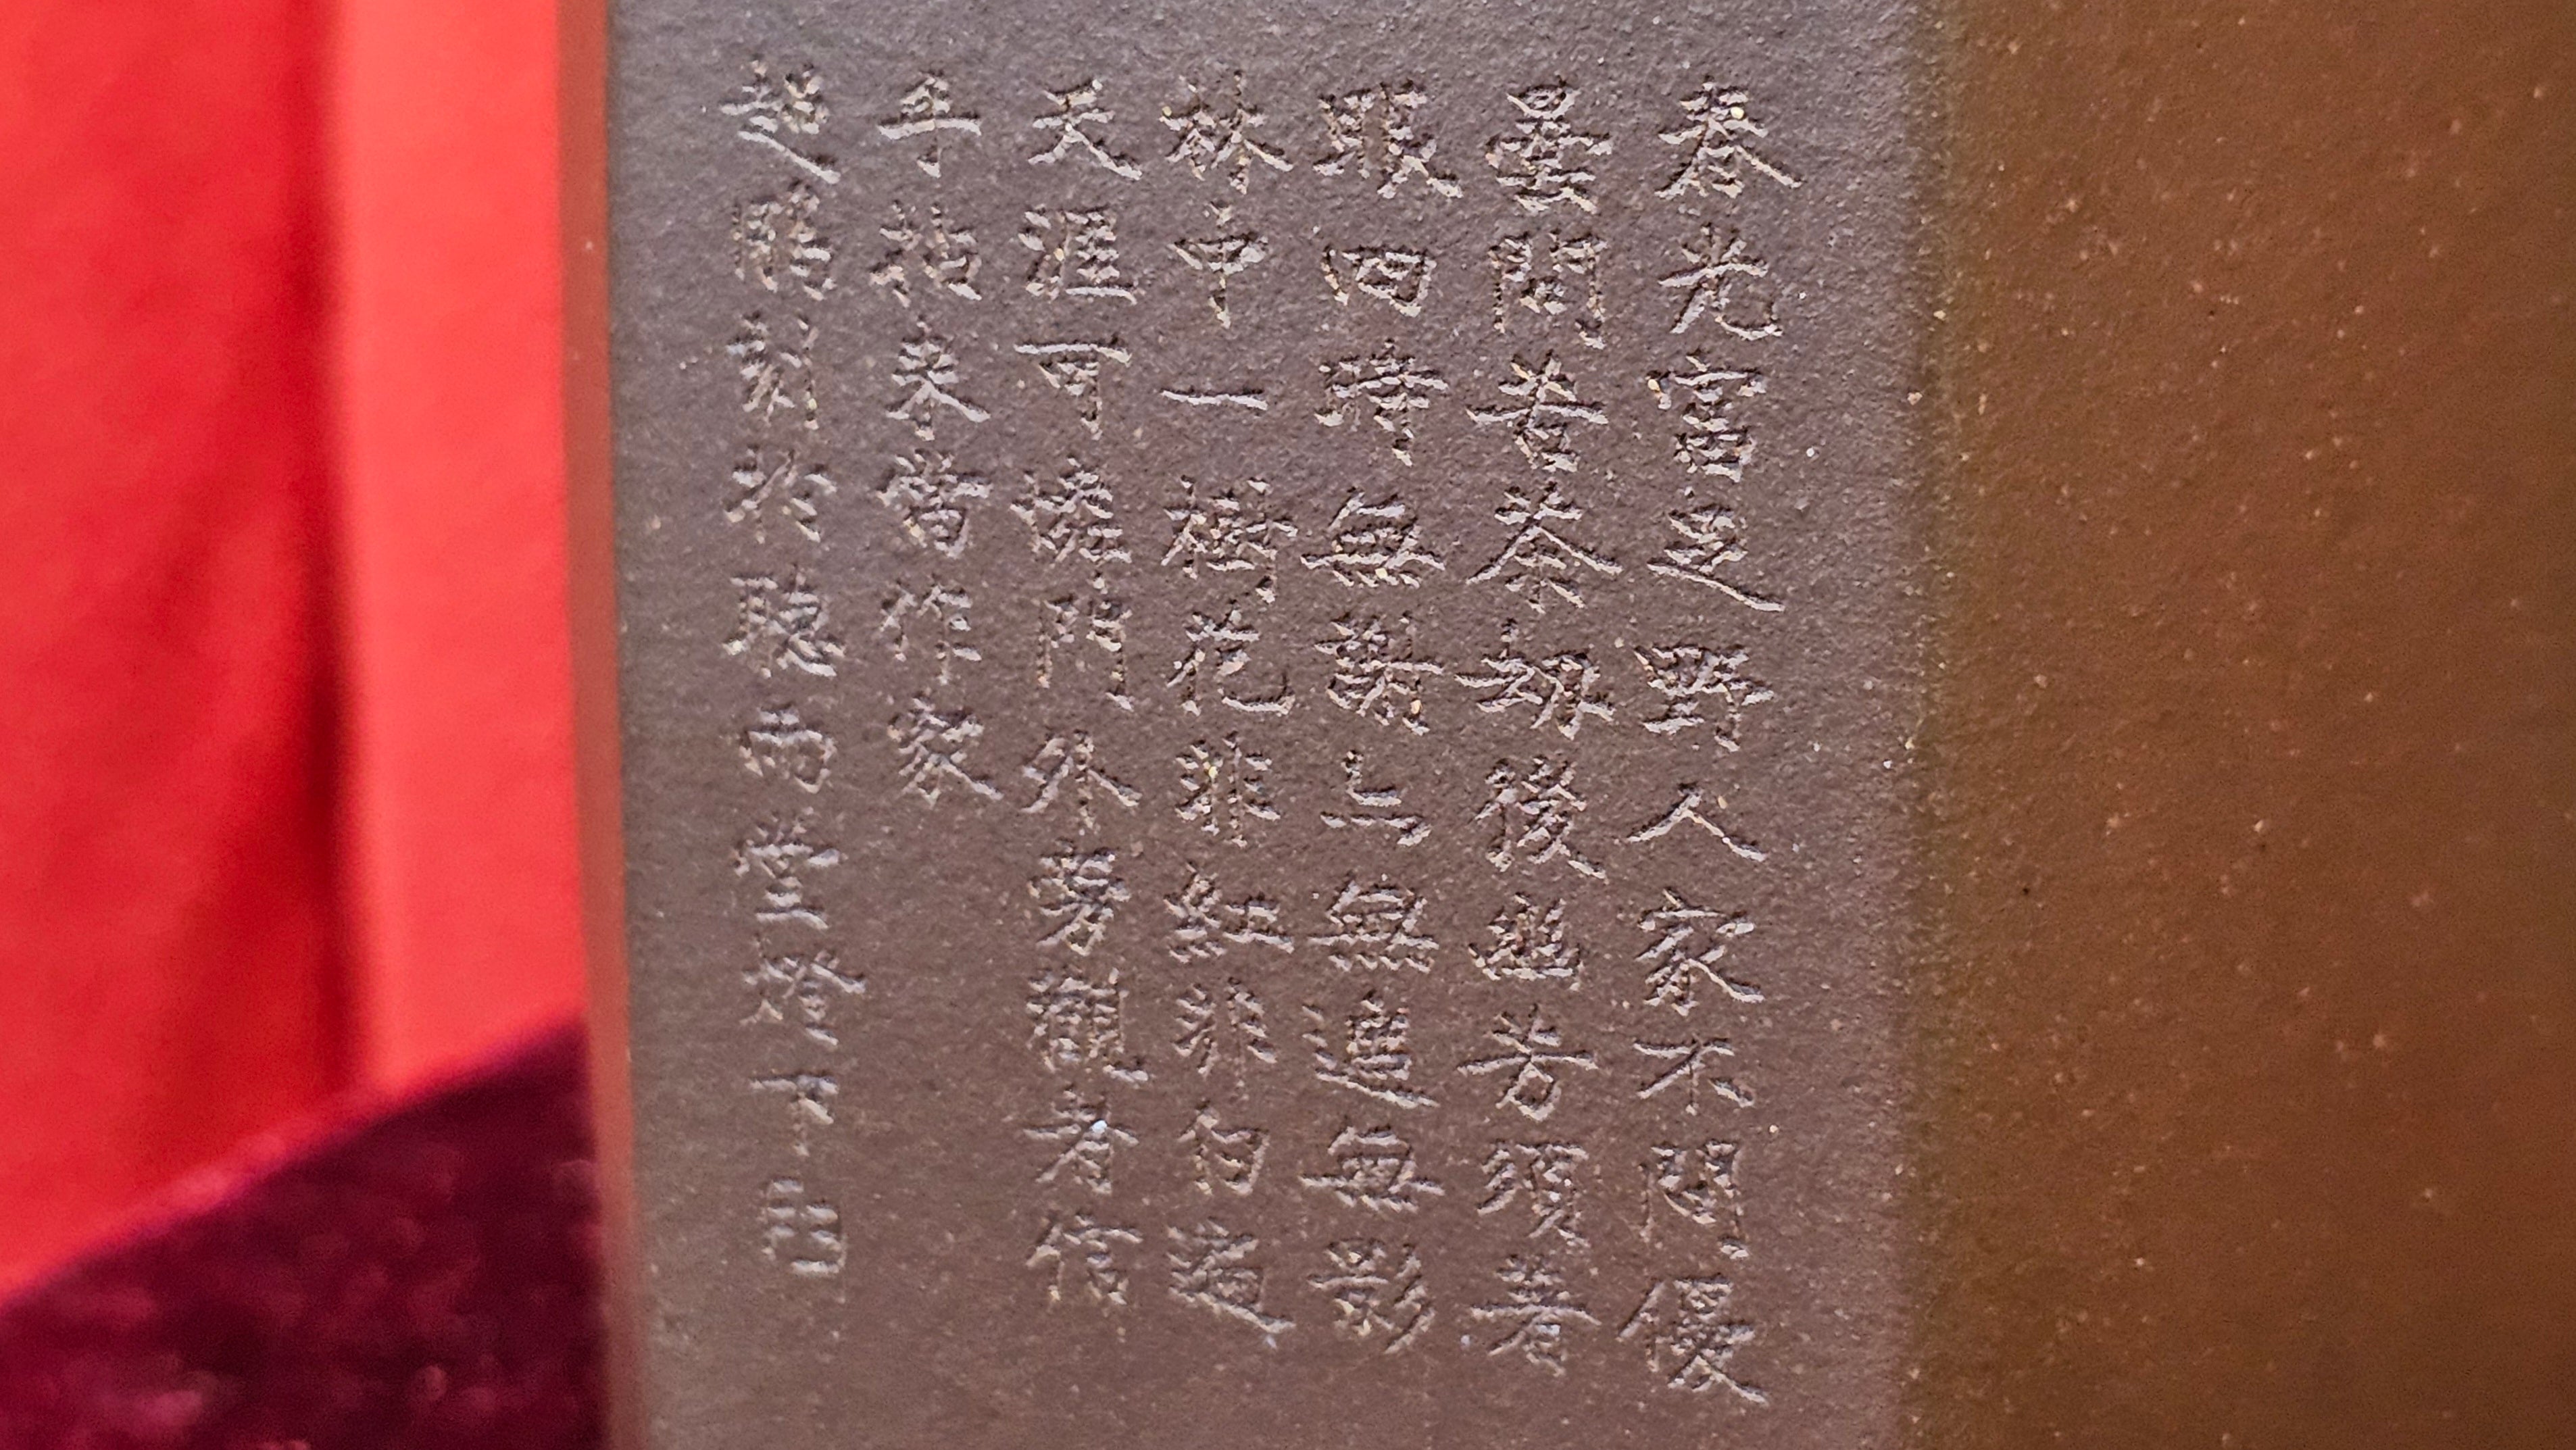 春光富足野人家不問優
曇問苦茶劫後幽芳須著
眼四時無謝亦無遮無影
林中一樹花非紅非白遍
天涯可憐門外旁觀者信
手拈來當作家
超鵬刻於聽雨堂燈下